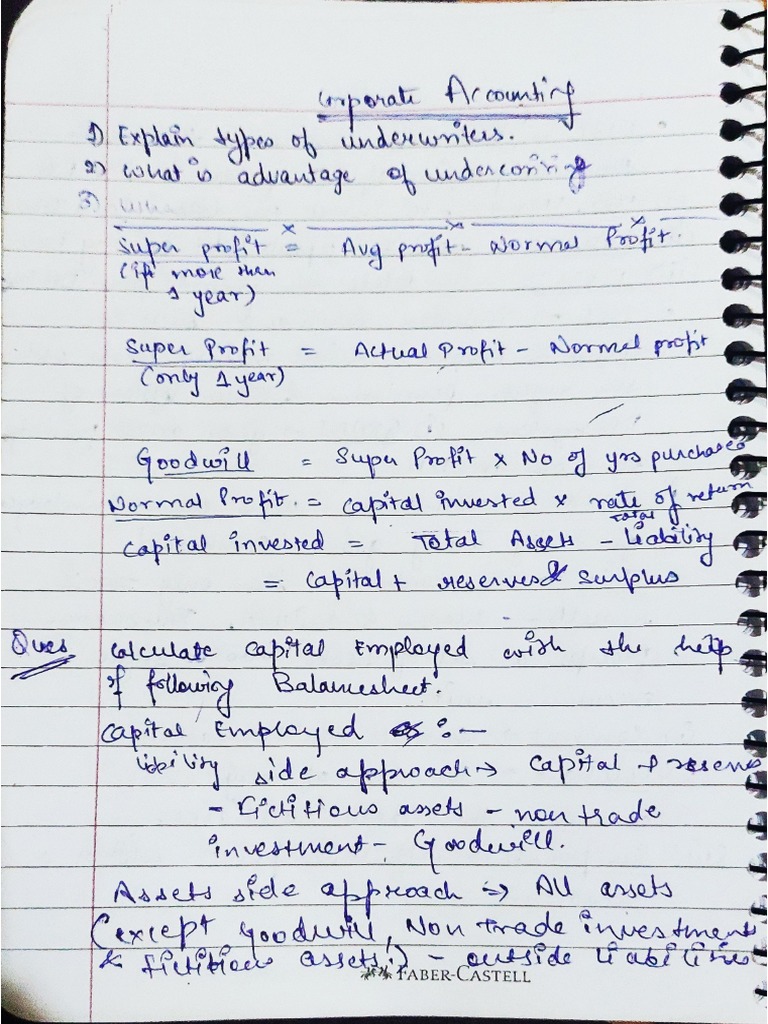 Corporate Accounting
1) Explain types of underwriters.
2) What is advantage of underwriting
3)
Super profit = Avg profit - Normal Profit.
(if more than
1 year)
Super Profit = Actual Profit - Normal profit
(only 1 year)
Goodwill = Super Profit x No of yrs purchased
Normal Profit. = Capital invested x rate of return
Capital invested = Total Assets - Total Liability
= Capital + reserves & Surplus
Ques Calculate Capital Employed with the help
of following Balancesheet.
Capital Employed :-
liability side approach → Capital + reserve
- Fictitious assets - non trade
investment - Goodwill.
Assets side approach => All assets
(except Goodwill, Non trade investment
& fictitious assets.) - outside liabilities
FABER-CASTELL